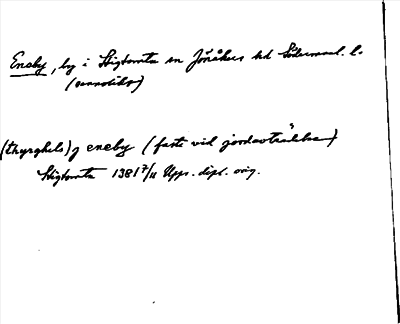 Eneby, by i Stigtomta sn Jönåkers hd Södermanl. l.
(sannolikt)
(thyrghels) j eneby (faste vid jordavträdelse)
Stigtomta 1381 7/11 Upps. dipl. orig.